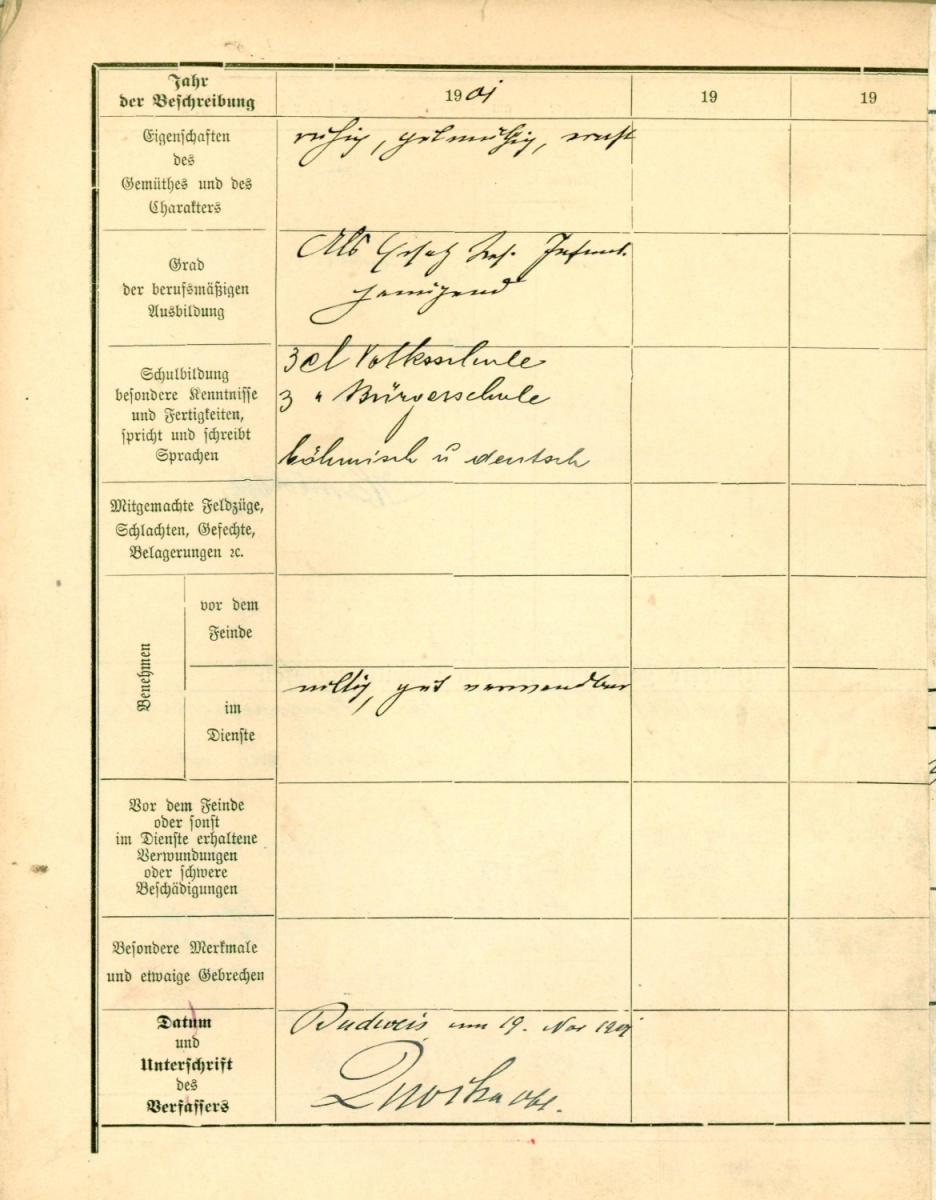 Jahr
der Beschreibung
1901
19
19
Eigenschaften
des
Gemüthes und des
Charakters
ruhig, gutmüthig, ernst
Grad
der berufsmäßigen
Ausbildung
Als Ersatz Res. Infant.
genügend
Schulbildung
besondere Kenntnisse
und Fertigkeiten,
spricht und schreibt
Sprachen
3 cl Volksschule
3 " Bürgerschule
böhmisch u deutsch
Mitgemachte Feldzüge,
Schlachten, Gefechte,
Belagerungen ꝛc.
Benehmen
vor dem
Feinde
im
Dienste
willig, gut verwendbar
Vor dem Feinde
oder sonst
im Dienste erhaltene
Verwundungen
oder schwere
Beschädigungen
Besondere Merkmale
und etwaige Gebrechen
Datum
und
Unterschrift
des
Verfassers
Budweis am 19. Nov 1901
Obl.